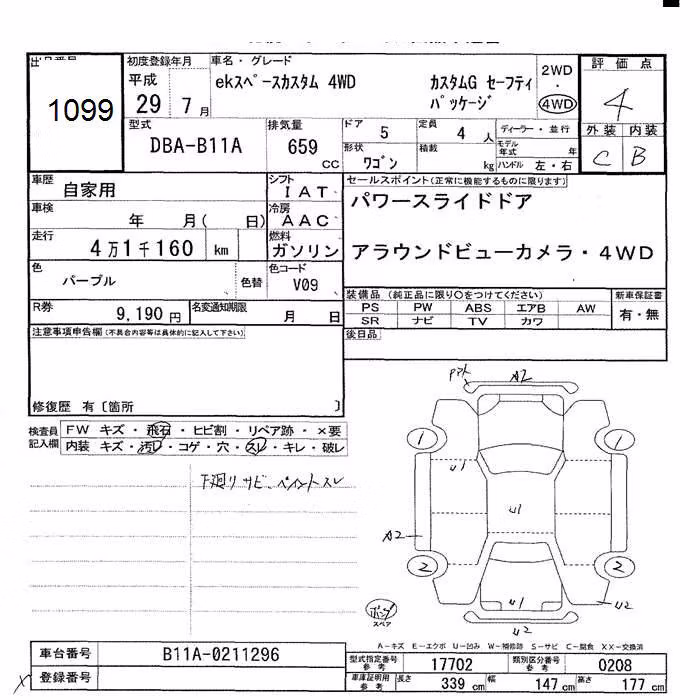 出品番号
1099
初度登録年月
平成
29 7 月
車名・グレード
ekスペースカスタム 4WD
カスタムG セーフティ
パッケージ
2WD
・
4WD
評価点
4
外装 内装
C B
型式
DBA-B11A
排気量
659
CC
ドア
5
定員
4 人
形状
ワゴン
積載
kg
ディーラー・並行
モデル年式 年
ハンドル 左・右
車歴
自家用
シフト
IAT
車検
年 月( 日)
冷房
AAC
走行
4万1千160 km
燃料
ガソリン
色
パープル
色替
色コード
V09
R券
9,190 円
名変通知期限
月 日
セールスポイント(正常に機能するものに限ります)
パワースライドドア
アラウンドビューカメラ・4WD
装備品 (純正品に限り○をつけてください)
PS PW ABS エアB AW
SR ナビ TV カワ
新車保証書
有・無
後日品
注意事項申告欄(不具合内容等は具体的に記入して下さい)
修復歴 有〔箇所 〕
検査員
記入欄
FW キズ・飛石・ヒビ割・リペア跡・×要
内装 キズ・汚れ・コゲ・穴・スレ・キレ・破レ
下廻り サビ、ペイントスレ
A2
1 1
U1
U1
A2
2 2
U1
U2
U2
スペア
A-キズ E-エクボ U-凹み W-補修跡 S-サビ C-腐食 XX-交換済
車台番号
B11A-0211296
登録番号
X
型式指定番号
参考
17702
類別区分番号
参考
0208
車庫証明用
参考
長さ 339 cm 幅 147 cm 高さ 177 cm